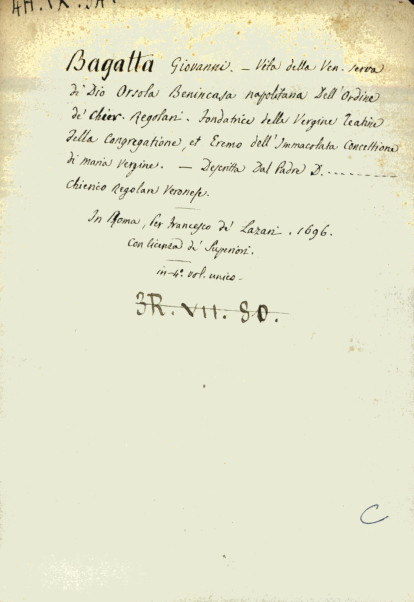 Bagatta Giovanni. – Vita della Ven. serva
di Dio Orsola Benincasa napolitana Dell'Ordine
de' Chier. Regolari. Fondatrice della Vergine Teatine
della Congregatione, et Eremo dell'Immacolata Concettione
di maria vergine. – Descritta Dal Padre D. ---------
Chierico Regolare Veronese.
In Roma, Per Francesco de' Lazari. 1696.
Con licenza de' Superiori.
in-4º. vol. unico-
3R. VII. 80.
C